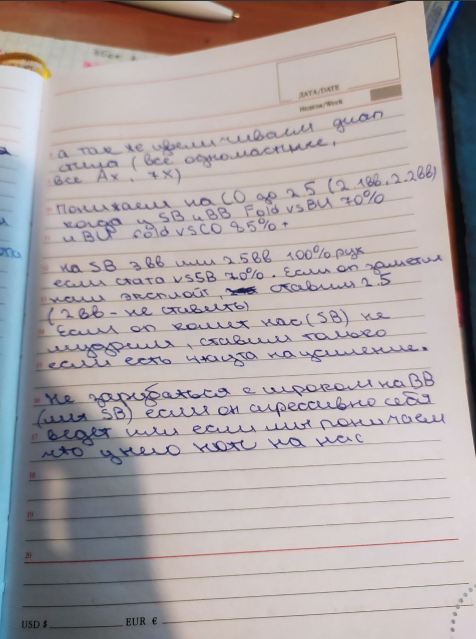 ДАТА/DATE
Неделя/Week
а так же увеличиваем диап
(все одномастные,
все Ax, 7x)
Понижаем на CO до 2.5 (2.1вв, 2.2вв)
когда у SB и BB Fold vs BU 70%
и BU fold vs CO 85% +
на SB 3вв или 2.5вв 100% рук
если стата vs SB 70%. Если оп заметил
наш эксплойт, ставим 2.5
(2вв - не ставить)
Если оп колит нас (SB) не
мудрим, ставим только
если есть на усиление.
Не зарубаться с игроком на BB
(или SB) если он агрессивно себя
ведет или если мы понимаем
что у него нотс на нас
16
17
18
19
20
USD $
EUR €